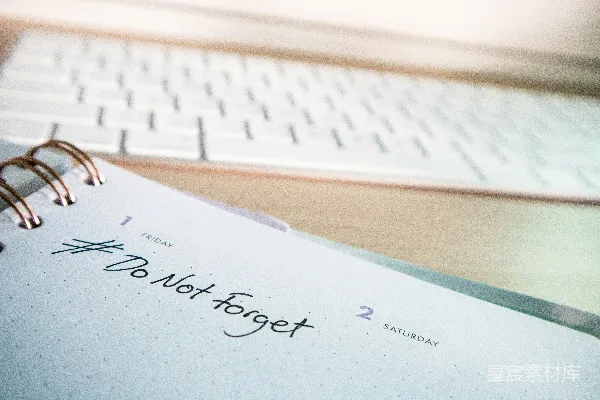 1 FRIDAY
#Do Not Forget
2 SATURDAY
星宸素材库